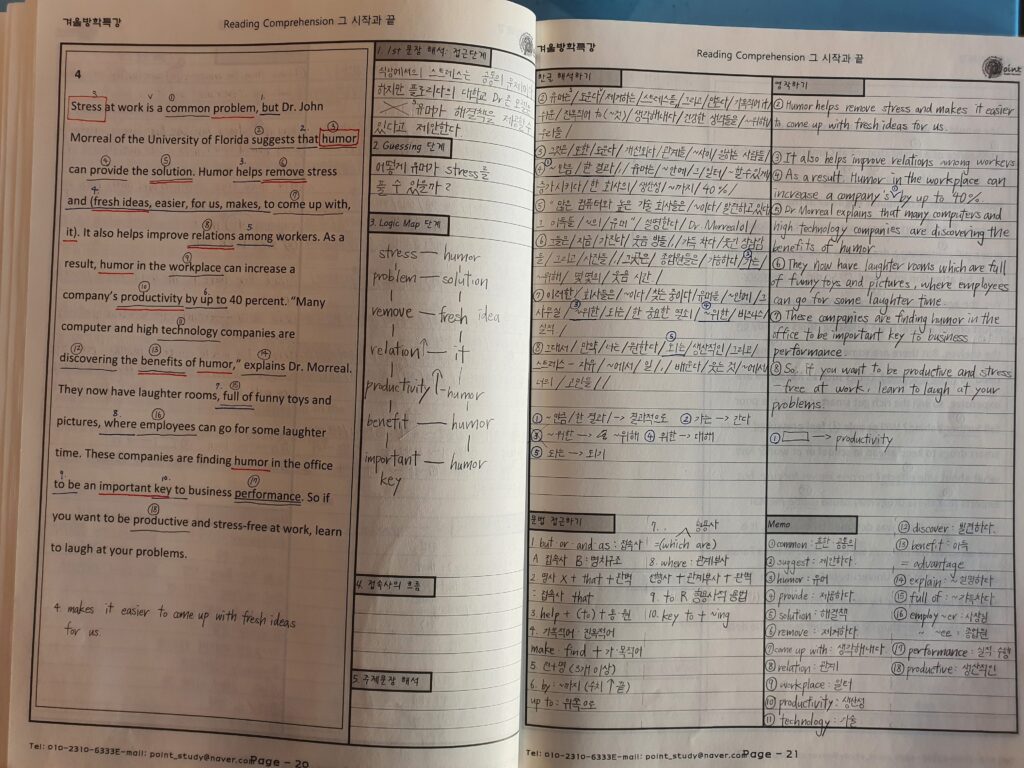 겨울방학특강
Reading Comprehension 그 시작과 끝
4
Stress at work is a common problem, but Dr. John
Morreal of the University of Florida suggests that humor
can provide the solution. Humor helps remove stress
and (fresh ideas, easier, for us, makes, to come up with,
it). It also helps improve relations among workers. As a
result, humor in the workplace can increase a
company's productivity by up to 40 percent. "Many
computer and high technology companies are
discovering the benefits of humor," explains Dr. Morreal.
They now have laughter rooms, full of funny toys and
pictures, where employees can go for some laughter
time. These companies are finding humor in the office
to be an important key to business performance. So if
you want to be productive and stress-free at work, learn
to laugh at your problems.
4. makes it easier to come up with fresh ideas
for us.
1. 1st 문장 해석: 접근단계
직장에서의 스트레스는 공통의 문제이다
하지만 플로리다의 대학교 Dr.존 모렐은
유머가 해결책을 제공할수
있다고 제안한다.
2. Guessing 단계
어떻게 유머가 stress를
풀 수 있을까?
3. Logic Map 단계
stress — humor
problem — solution
remove — fresh idea
relation↑ — it
productivity↑ - humor
benefit — humor
important — humor
key
4. 접속사의 흐름
5. 주제문장 해석
Tel: 010-2310-6333E-mail: point_study@naver.com
Page - 20
겨울방학특강
Reading Comprehension 그 시작과 끝
Point
한글 해석하기
② 유머는/ 도운다/ 제거하는/ 스트레스를/ 그리고/
우리를/
③ 그것은/ 또한/ 도운다/ 개선하다/ 관계를/ ~사이/ 일하는 사람들/
증가시키다/ 한 회사의/ 생산성/ ~까지/ 40%/
⑤ 많은 컴퓨터와 높은 기술 회사들은/ ~이다/ 발견하고있다/
그 이득들/ ~의/ 유머"/ 설명한다/ Dr. Morreal이/
~위해/ 몇몇의/ 웃음 시간/
실적/
너의/ 고민들//
① ~만큼/한 결과/ -> 결과적으로 ② 가는 -> 간다
③ ~위한 -> ~위해 ④ 위한 -> 대해
⑤ 되는 -> 되기
영작하기
② Humor helps remove stress and makes it easier
to come up with fresh ideas for us.
③ It also helps improve relations among workers
④ As a result. Humor in the workplace can
increase a company's ① by up to 40%
⑤ Dr Morreal explains that many computers and
high technology companies are discovering the
benefits of humor
⑥ They now have laughter rooms which are full
of funny toys and pictures, where employees
can go for some laughter time.
⑦ These companies are finding humor in the
office to be important key to business
performance.
⑧ So. if you want to be productive and stress
-free at work, learn to laugh at your
problems.
① -> productivity
문법 접근하기
1. but or and as : 접속사
A 접속사 B : 병치구조
2. 명사 X + that + 완벽
: 접속사 that
3. help + (to) + 동.원
4. 가목적어 : 진목적어
make · find + 가·목적어
5. 전+명 (3개 이상)
6. by : ~까지 (수치 ↑ 끝)
up to : 위쪽으로
7. . . 형용사
=(which are)
8. where : 관계부사
선행사 + 관계부사 + 완벽
9. to R 형용사적 용법
10. key to + ~ing
Memo
① common : 흔한, 공통의
② suggest : 제안하다.
③ humor : 유머
④ provide : 제공하다.
⑤ solution : 해결책
⑥ remove : 제거하다
⑦ come up with : 생각해내다
⑧ relation : 관계
⑨ workplace : 일터
⑩ productivity : 생산성
⑪ technology : 기술
⑫ discover : 발견하다.
⑬ benefit : 이득
= advantage
⑭ explain : 설명하다
⑮ full of : ~가득차다
⑯ employ ~er : 사장님
" ~ee : 종업원
⑰ performance : 실적·수행
⑱ productive : 생산적인
Tel: 010-2310-6333E-mail: point_study@naver.com
Page - 21